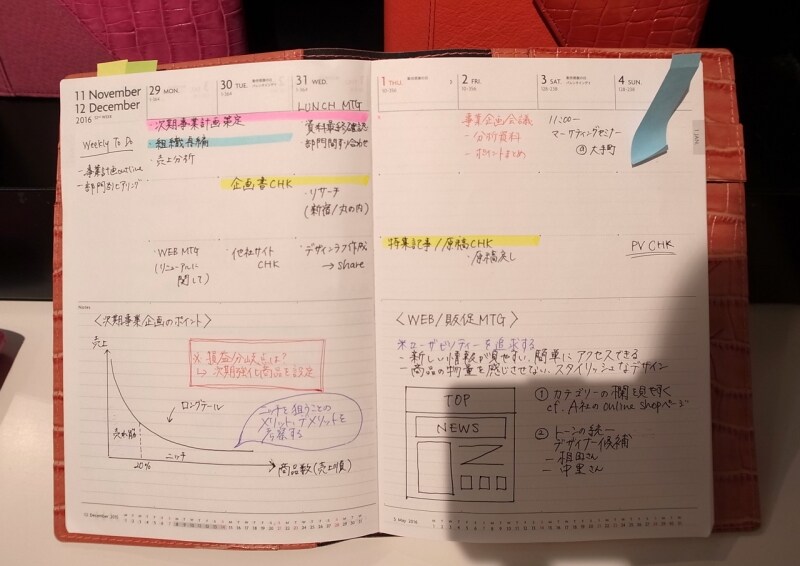 11 November
12 December
2016
29 MON.
30 TUE.
31 WED.
1 THU.
2 FRI.
3 SAT.
4 SUN.
Weekly To Do
- 事業計画outline
- 部門別ヒアリング
・次期事業計画策定
・組織再編
・売上分析
LUNCH MTG
・資料最終確認
部門間打ち合わせ
企画書CHK
・リサーチ
(新宿/丸の内)
・WEB MTG
(リニューアルに
関して)
・他社サイト
CHK
・デザインラフ作成
→ share
事業企画会議
- 分析資料
- ポイントまとめ
11:00-
マーケティングセミナー
@大手町
特集記事/原稿CHK
・原稿戻し
PV CHK
Notes
<次期事業企画のポイント>
売上
※ 損益分岐点は?
↳ 次期強化商品を設定
ロングテール
ニッチを狙うことの
メリット、デメリットを
考察する
売れ筋
ニッチ
20%
商品数(売上順)
<WEB/販促MTG>
※ユーザビリティーを追求する
- 新しい情報が見やすい、簡単にアクセスできる
- 商品の物量を感じさせない、スタイリッシュなデザイン
TOP
NEWS
① カテゴリーの欄を見やすく
cf. A社のonline shopページ
② トーンの統一
デザイナー候補
- 相田さん
- 中里さん
12 December 2016